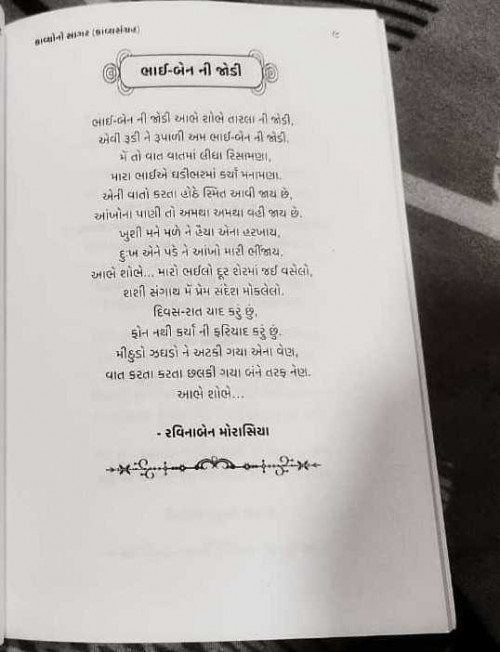 કાવ્યોનો સાગર (કાવ્યસંગ્રહ)
ભાઈ-બેન ની જોડી
ભાઈ-બેન ની જોડી આભે શોભે તારલા ની જોડી,
એવી રૂડી ને રૂપાળી અમ ભાઈ-બેન ની જોડી.
મેં તો વાત વાતમાં લીધા રિસામણા,
મારા ભાઈએ ઘડીભરમાં કર્યાં મનામણા.
એની વાતો કરતા હોઠે સ્મિત આવી જાય છે,
આંખોના પાણી તો અમથા અમથા વહી જાય છે.
ખુશી મને મળે ને હૈયા એના હરખાય,
દુઃખ એને પડે ને આંખો મારી ભીંજાય.
આભે શોભે... મારો ભઈલો દૂર શેરમાં જઈ વસેલો,
શશી સંગાથ મેં પ્રેમ સંદેશ મોકલેલો.
દિવસ-રાત યાદ કરું છું,
ફોન નથી કર્યાં ની ફરિયાદ કરું છું.
મીઠુડો ઝઘડો ને અટકી ગયા એના વેણ,
વાત કરતા કટતા છલકી ગયા બંને તરફ નેણ.
આભે શોભે...
- રવિનાબેન મોરાસિયા